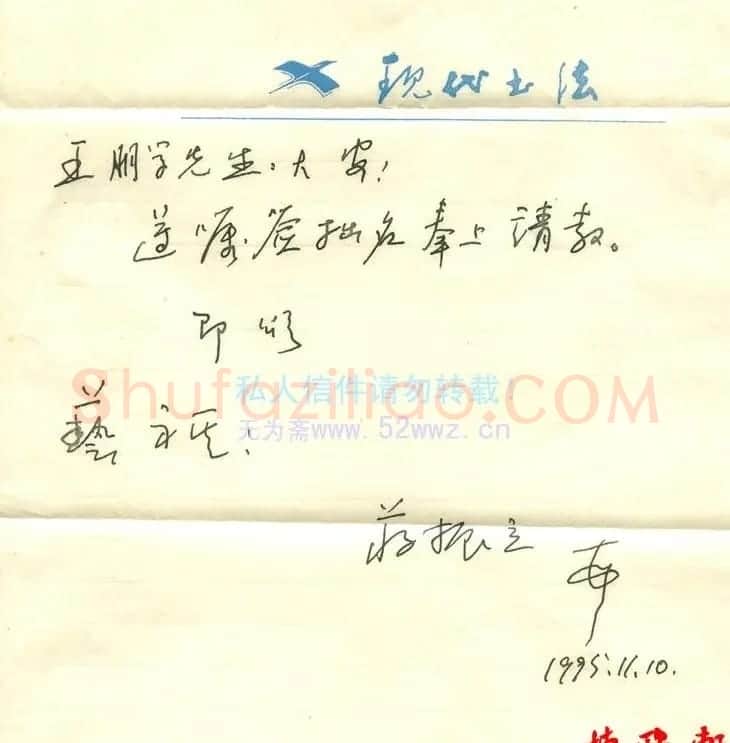 现代书法
王朋学先生:大安!
遵嘱签拙名奉上请教。
即颂
藝祺!
蒋振立
1995.11.10.
Shufaziliao.COM
私人信件请勿转载!
无为斋www.52wwz.cn